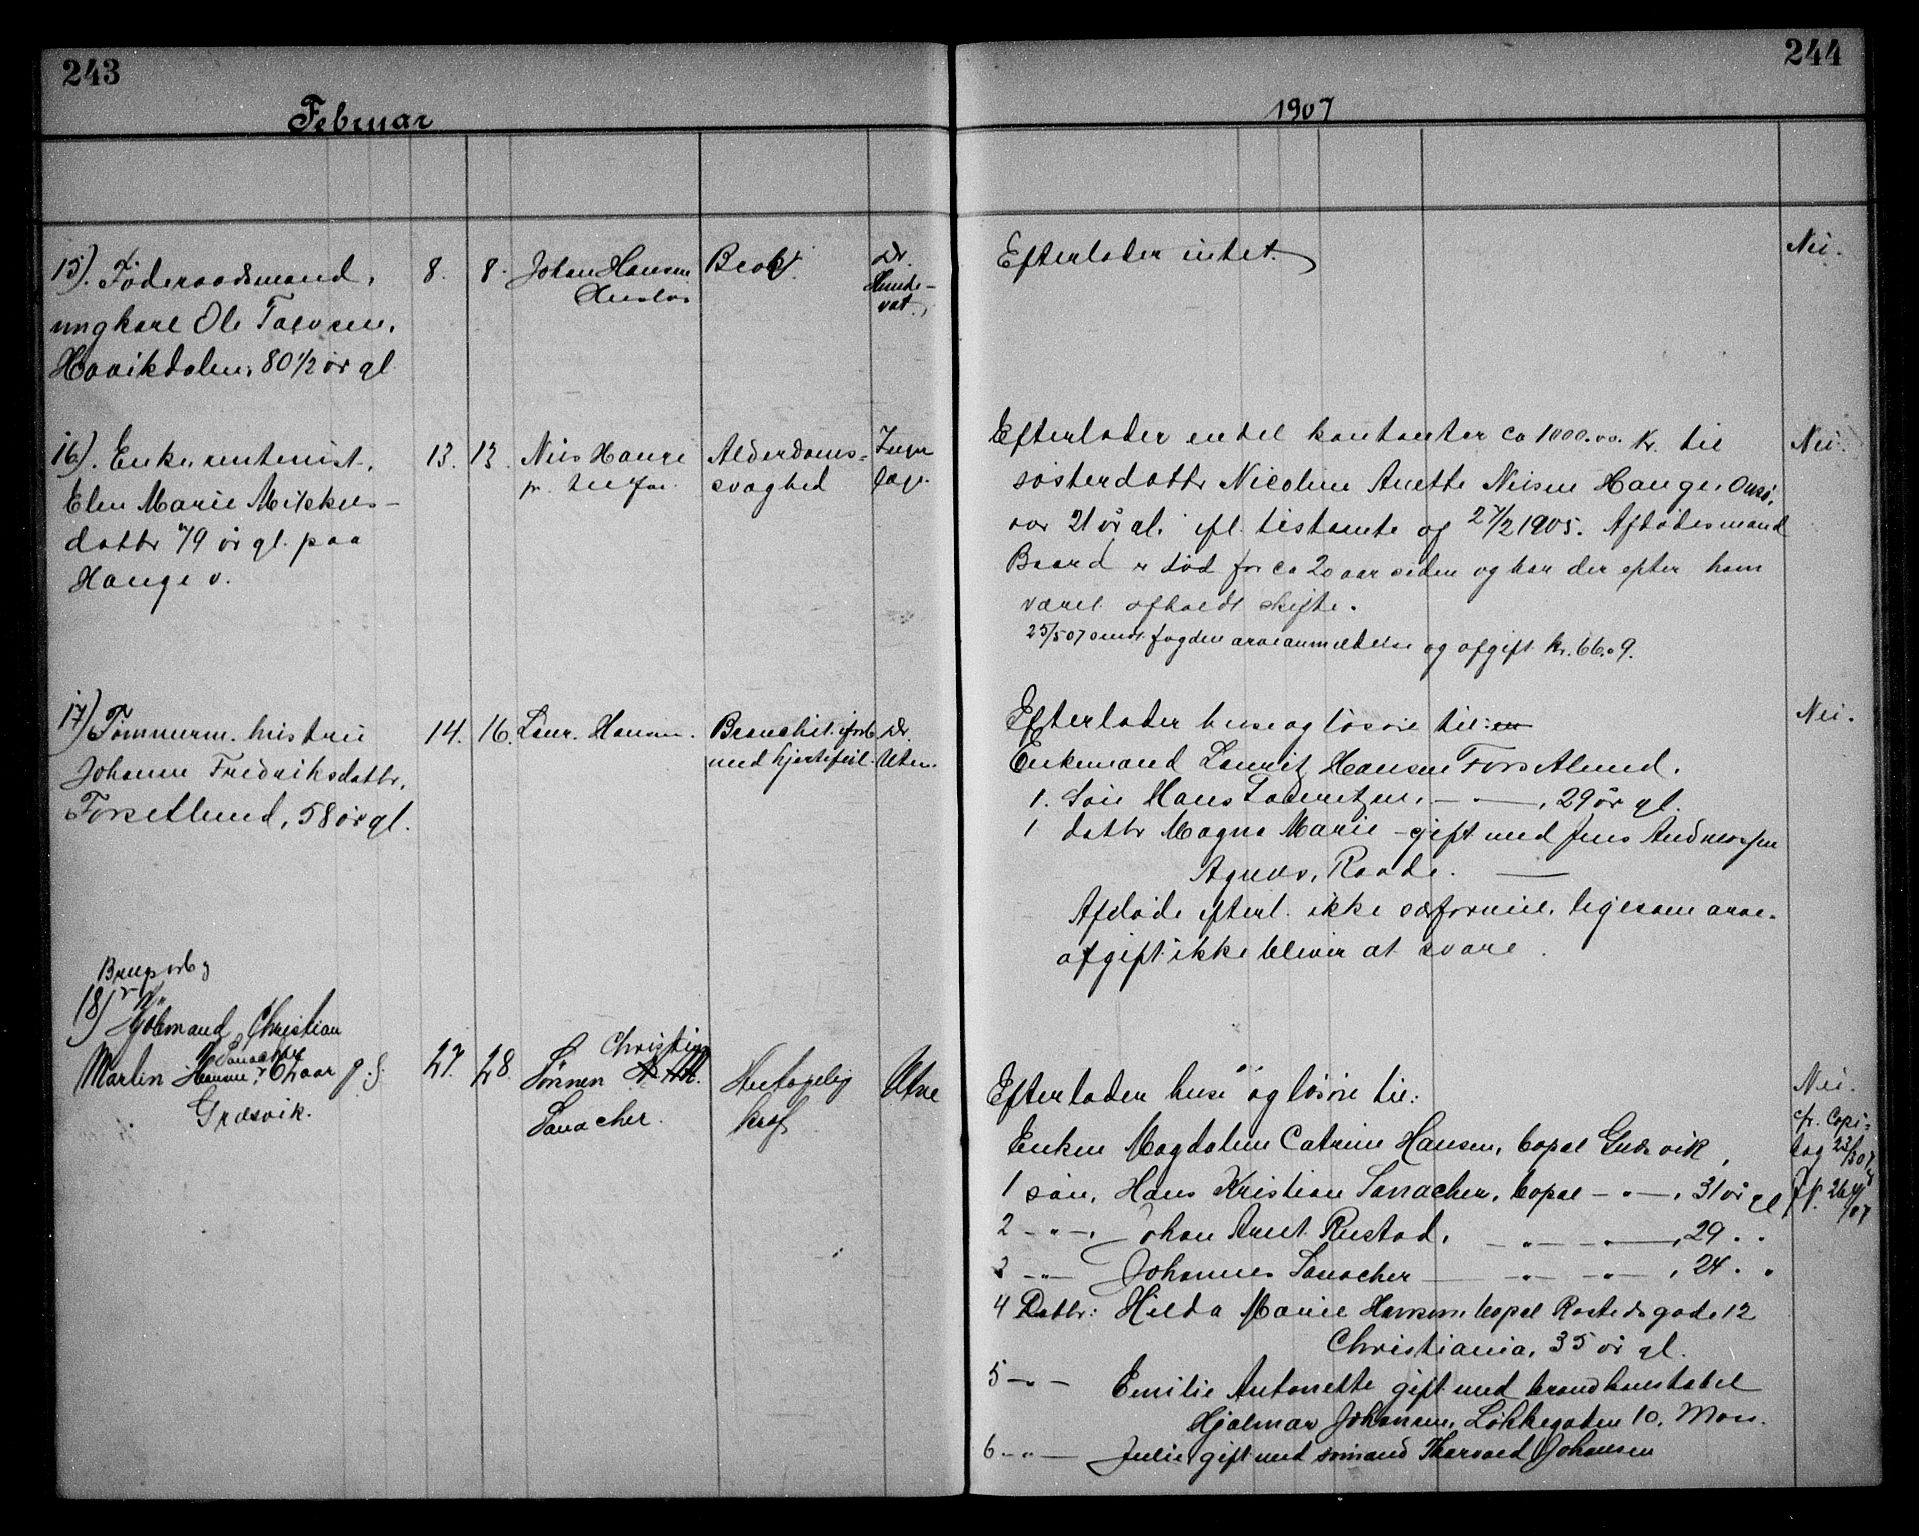 243
244
Februar
1907
15). Føderaadsmand,
ungkarl Ole
Haavikdalen, 80 1/2 år gl
8.
8.
Johan Hansen
Dr.
Hunde-
vat.
Efterlader intet.
Nei.
16). Enke,
Elen Marie Mikkels-
dattr 79 år gl. paa
Hauge v.
13.
13.
Nils Hauge
Alderdoms=
svaghed
Efterlader endel kontanter ca 1000.00. Kr. til
søsterdattr Nicoline Anette Nilsen Hauge, Onsø,
21 år gl. ifl. testamte og 27/2 1905. Afdødes mand
Baard er død for ca 20 aar siden og har der efter ham
været afholdt skifte.
25/5 07 sendt fogden arveanmeldelse og afgift kr. 66.09.
Nei.
17) Tømmerm. hustru
Johanne Fredriksdattr,
Forsetlund, 58 år gl.
14.
16.
Laur. Hansen.
Bronchit. iforb.
med hjertefeil.
Dr.
Utne.
Efterlader huse og løsøre til:
Enkemand Lauritz Hansen Forsetlund.
1. Søn Hans Lauritzen, — " —, 29 år gl.
1 dattr Magna Marie - gift med Jens Andreassen
Raade.
Afdøde efterl. ikke særformue, ligesom arve-
afgift ikke bliver at svare.
Nei.
18)
Christian
Martin Hansen Sanacher 62 aar g.
Græsvik.
27.
28
Christian
Sønnen
Sanacher.
Utne
Efterlader huse og løsøre til:
Enken Magdaline Catrine Hansen, bopæl Græsvik,
1 søn, Hans Kristian Sanacher, bopæl — " —, 31 år gl
2 — " —, Johan Arnt Rustad, — " — " —, 29 " "
3 — " — Johannes Sanacher — " — " —, 24 " "
4 Dattr: Hilda Marie Hansen bopæl Rosteds gade 12
Christiania, 35 år gl.
5 — " — Emilie Antonette gift med brandkonstabel
Hjalmar Johansen, Løkkegaden 10, Moss.
6 — " — Julie gift med sømand Thorvald Johansen
Nei.
cfr. Copi=
bog 23/3 07